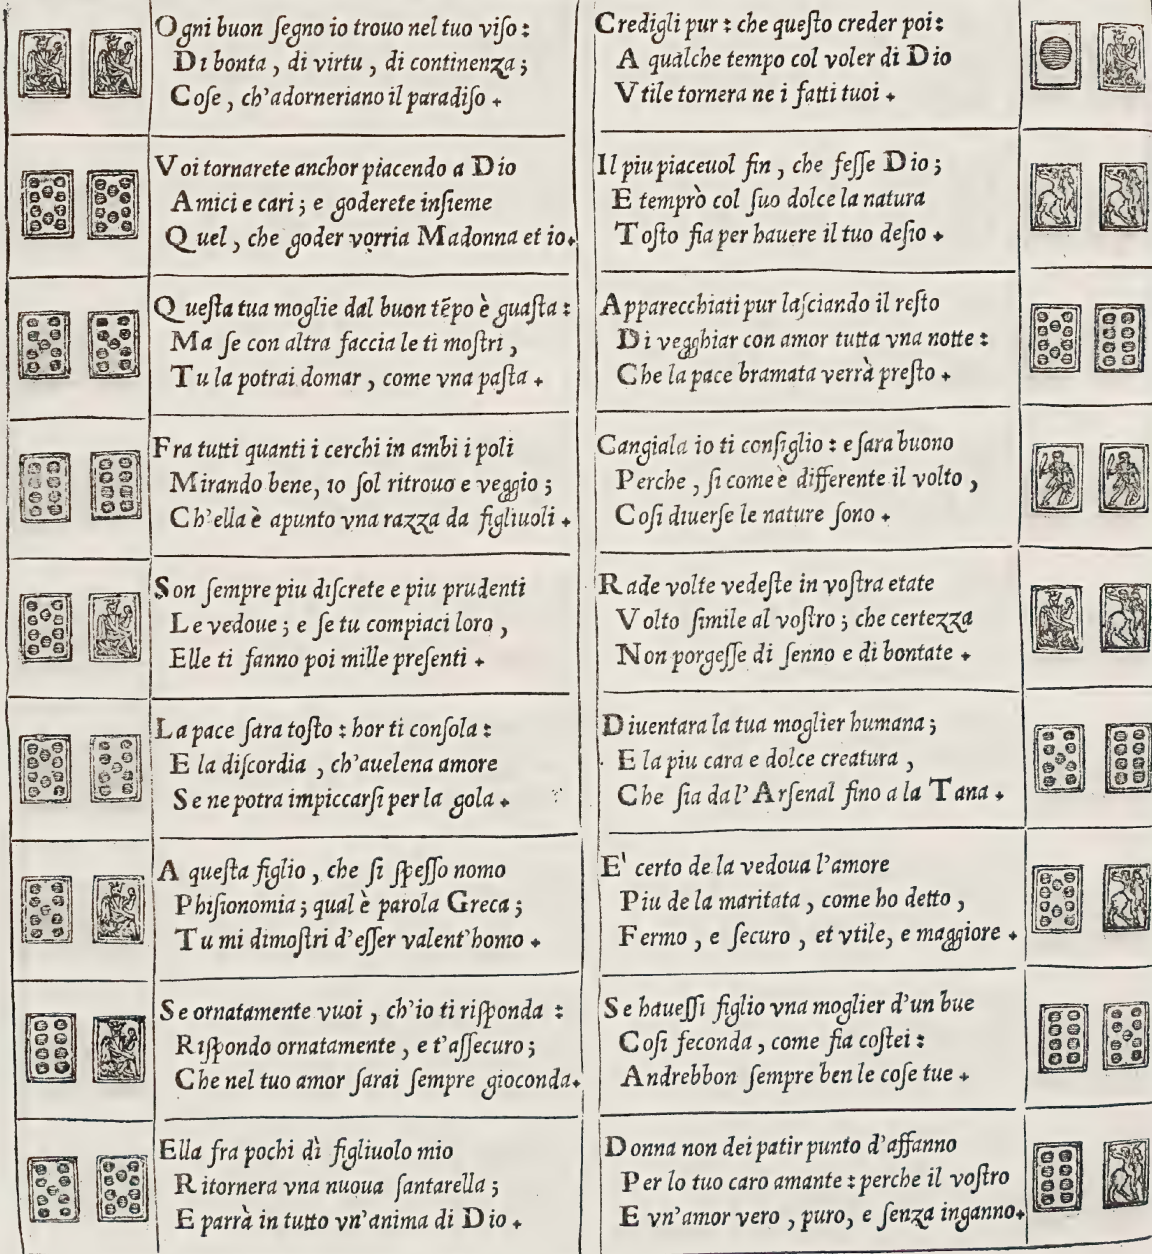 Ogni buon ſegno io trouo nel tuo viſo :
Di bonta , di virtu , di continenza ;
Coſe , ch'adorneriano il paradiſo .
Voi tornarete anchor piacendo a Dio
Amici e cari ; e goderete inſieme
Quel , che goder vorria Madonna et io.
Queſta tua moglie dal buon tēpo è guaſta :
Ma ſe con altra faccia le ti moſtri ,
Tu la potrai domar , come vna paſta .
Fra tutti quanti i cerchi in ambi i poli
Mirando bene, io ſol ritrouo e veggio ;
Ch'ella è apunto vna razza da figliuoli .
Son ſempre piu diſcrete e piu prudenti
Le vedoue ; e ſe tu compiaci loro ,
Elle ti fanno poi mille preſenti .
La pace ſara toſto : hor ti conſola :
E la diſcordia , ch'auelena amore
Se ne potra impiccarſi per la gola .
A queſta figlio , che ſi ſpeſſo nomo
Phiſionomia ; qual è parola Greca ;
Tu mi dimoſtri d'eſſer valent'homo .
Se ornatamente vuoi , ch'io ti riſponda :
Riſpondo ornatamente , e t'aſſecuro ;
Che nel tuo amor ſarai ſempre gioconda.
Ella fra pochi dì figliuolo mio
Ritornera vna nuoua ſantarella ;
E parrà in tutto vn'anima di Dio .
Credigli pur : che queſto creder poi :
A qualche tempo col voler di Dio
Vtile tornera ne i fatti tuoi .
Il piu piaceuol fin , che feſſe Dio ;
E temprò col ſuo dolce la natura
Toſto fia per hauere il tuo deſio .
Apparecchiati pur laſciando il reſto
Di vegghiar con amor tutta vna notte :
Che la pace bramata verrà preſto .
Cangiala io ti conſiglio : e ſara buono
Perche , ſi come è differente il volto ,
Coſi diuerſe le nature ſono .
Rade volte vedeſte in voſtra etate
Volto ſimile al voſtro ; che certezza
Non porgeſſe di ſenno e di bontate .
Diuentara la tua moglier humana ;
E la piu cara e dolce creatura ,
Che ſia dal'Arſenal fino a la Tana .
E' certo de la vedoua l'amore
Piu de la maritata , come ho detto ,
Fermo , e ſecuro , et vtile, e maggiore .
Se haueſſi figlio vna moglier d'un bue
Coſi feconda , come fia coſtei :
Andrebbon ſempre ben le coſe tue .
Donna non dei patir punto d'affanno
Per lo tuo caro amante : perche il voſtro
E vn'amor vero , puro, e ſenza inganno.